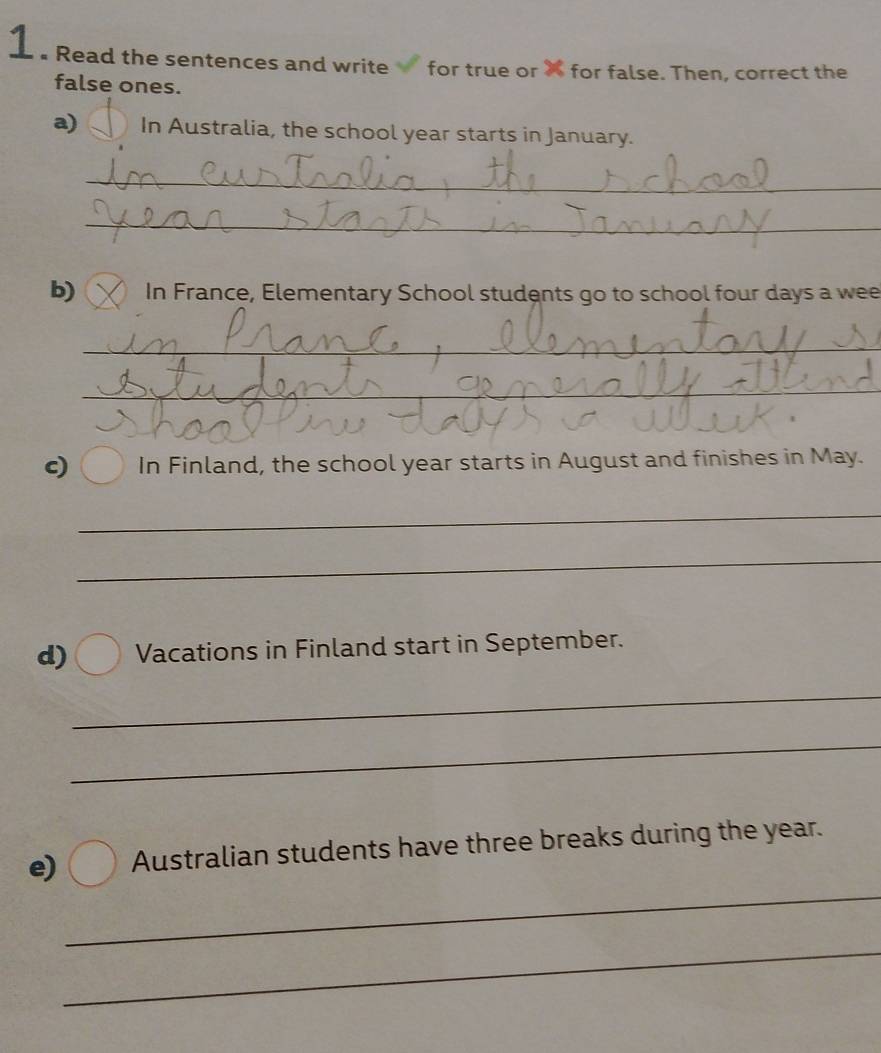 1. Read the sentences and write ✔ for true or ✖ for false. Then, correct the
false ones.
a) ✓ In Australia, the school year starts in January.
In australia, the school
year starts in January
b) X In France, Elementary School students go to school four days a wee
in Franc, elementary s
students generally attend
shool five days a week.
c) In Finland, the school year starts in August and finishes in May.
d) Vacations in Finland start in September.
e) Australian students have three breaks during the year.